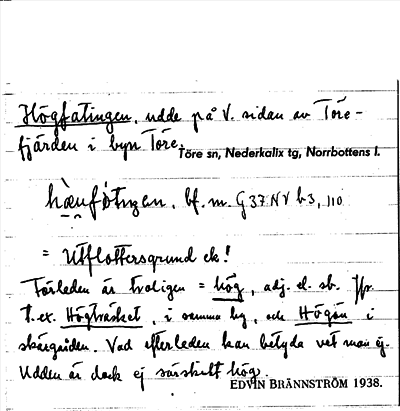 Högfatingen, udde på V. sidan av Töre-
fjärden i byn Töre.
Töre sn, Nederkalix tg, Norrbottens l.
bf. m. G 37 NV b3, 110
= Utflottersgrund ek!
Förleden är troligen = hög, adj. el. sb. Jfr
t. ex. Högträsket, i samma by, och Högön i
skärgården. Vad efterleden kan betyda vet man ej.
Udden är dock ej särskilt hög.
EDVIN BRÄNNSTRÖM 1938.